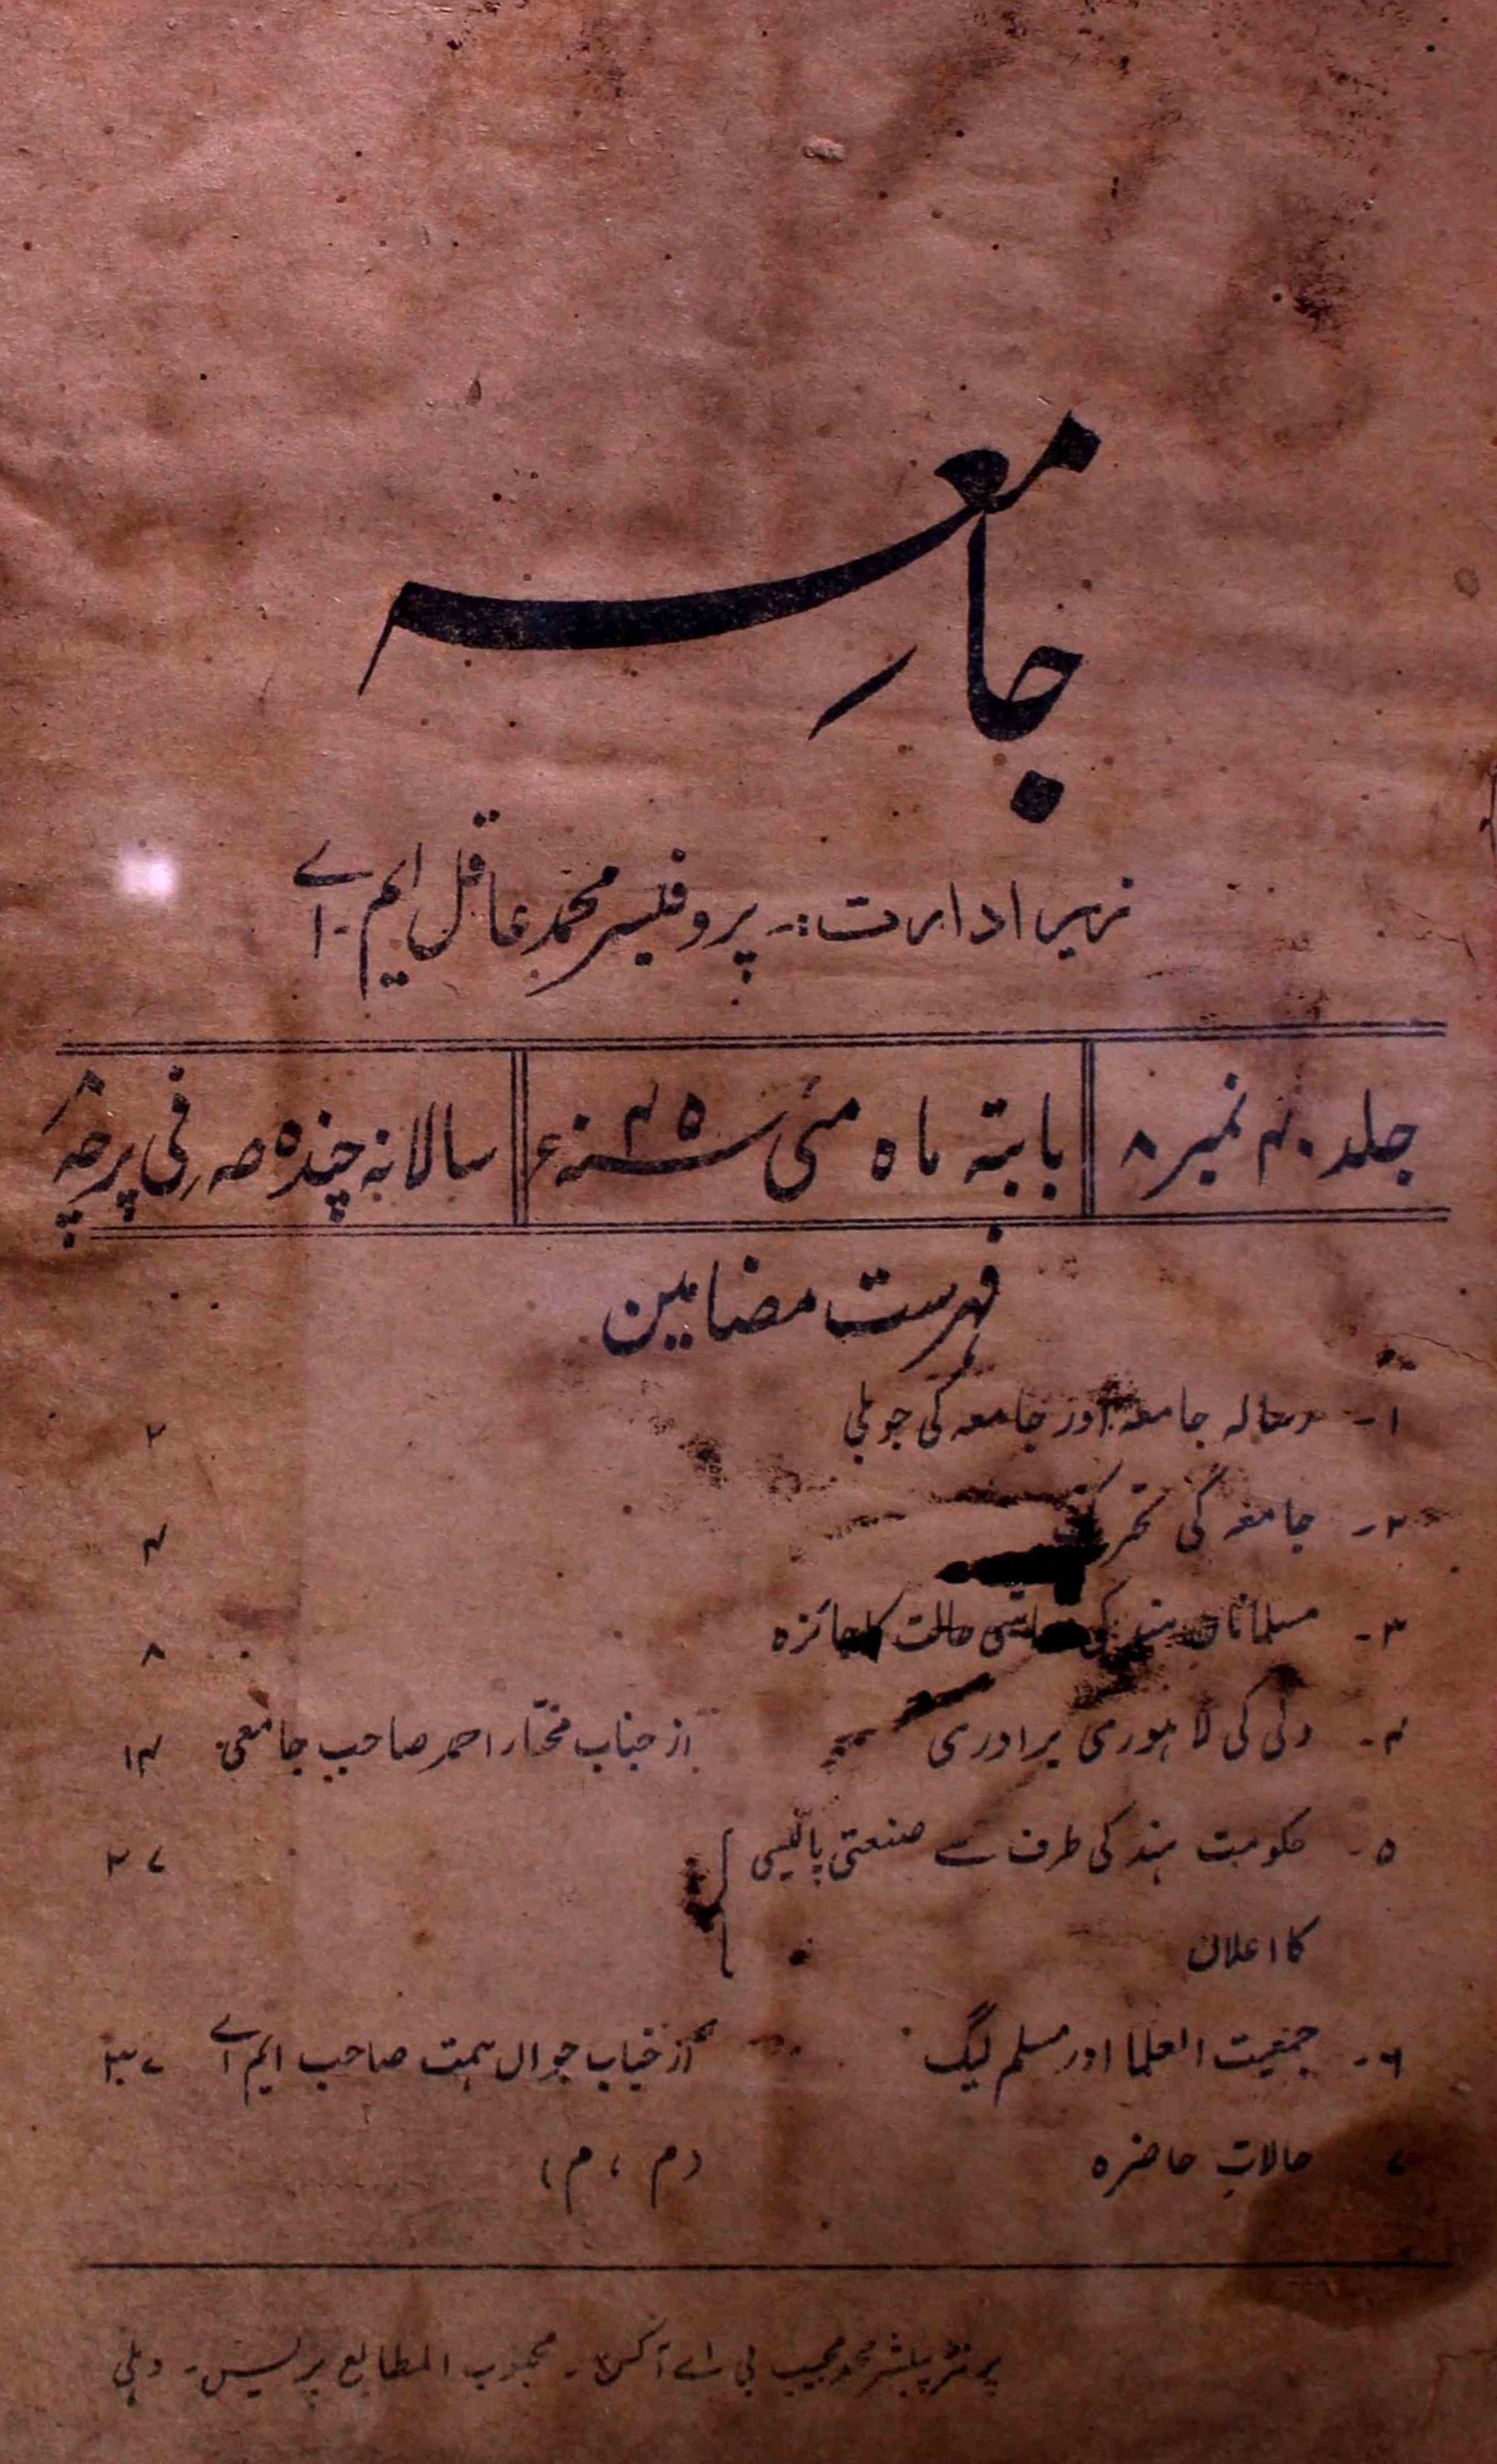 جامعہ
زیر ادارت :۔ پروفیسر محمد عاقل ایم۔اے
جلد ۴۰ نمبر ۸
بابتہ ماہ مئی سنہ ۴۵ء
سالانہ چندہ صہ فی پرچہ ۸؍
فہرست مضامین
۱۔ رسالہ جامعہ اور جامعہ کی جوبلی ۲
۲۔ جامعہ کی تحریک ۴
۳۔ مسلمانان ہند کی معاشی حالت کا جائزہ ۸
۴۔ دلی کی لاہوری برادری از جناب مختار احمد صاحب جامعی ۱۴
۵۔ حکومت ہند کی طرف سے صنعتی پالیسی ۲۷
کا اعلان
۶۔ جمعیت العلما اور مسلم لیگ از جناب جواں ہمت صاحب ایم اے ۳۷
۷ حالات حاضرہ (م، م)
پرنٹر پبلشر محمد مجیب بی اے آکسن۔ محبوب المطابع پریس۔ دہلی